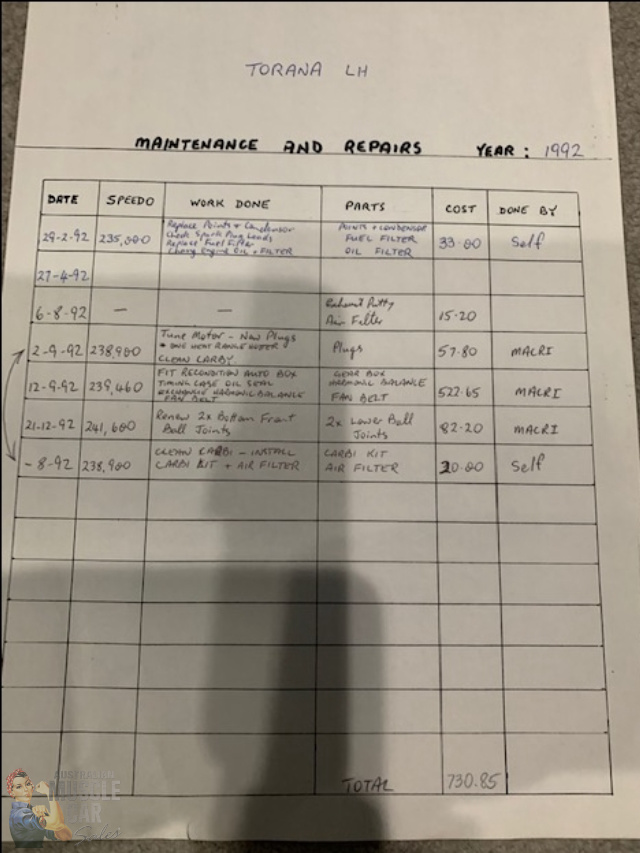 TORANA LH
MAINTENANCE AND REPAIRS YEAR: 1992
DATE SPEEDO WORK DONE PARTS COST DONE BY
29-2-92 235,000 Replace Points + Condensor POINTS + CONDENSOR 33.00 Self
Check Spark Plug Leads FUEL FILTER
Replace Fuel Filter OIL FILTER
Engine OIL + FILTER
27-4-92
6-8-92 — — Exhaust Putty 15.20
Air Filter
2-9-92 238,900 Tune Motor - New Plugs Plugs 57.80 MACRI
* ONE HEAT RANGE HOTER
CLEAN CARBY
12-9-92 239,460 FIT RECONDITION AUTO BOX GEAR BOX 522.65 MACRI
TIMING CASE OIL SEAL HARMONIC BALANCE
EXCHANGE HARMONIC BALANCE FAN BELT
FAN BELT
21-12-92 241,600 Renew 2x Bottom Front 2x Lower Ball 82.20 MACRI
Ball Joints Joints
-8-92 238,900 CLEAN CARBI - INSTALL CARBI KIT 20.00 Self
CARBI KIT + AIR FILTER AIR FILTER
TOTAL 730.85
AUSTRALIAN
MUSCLE
CAR
Sales